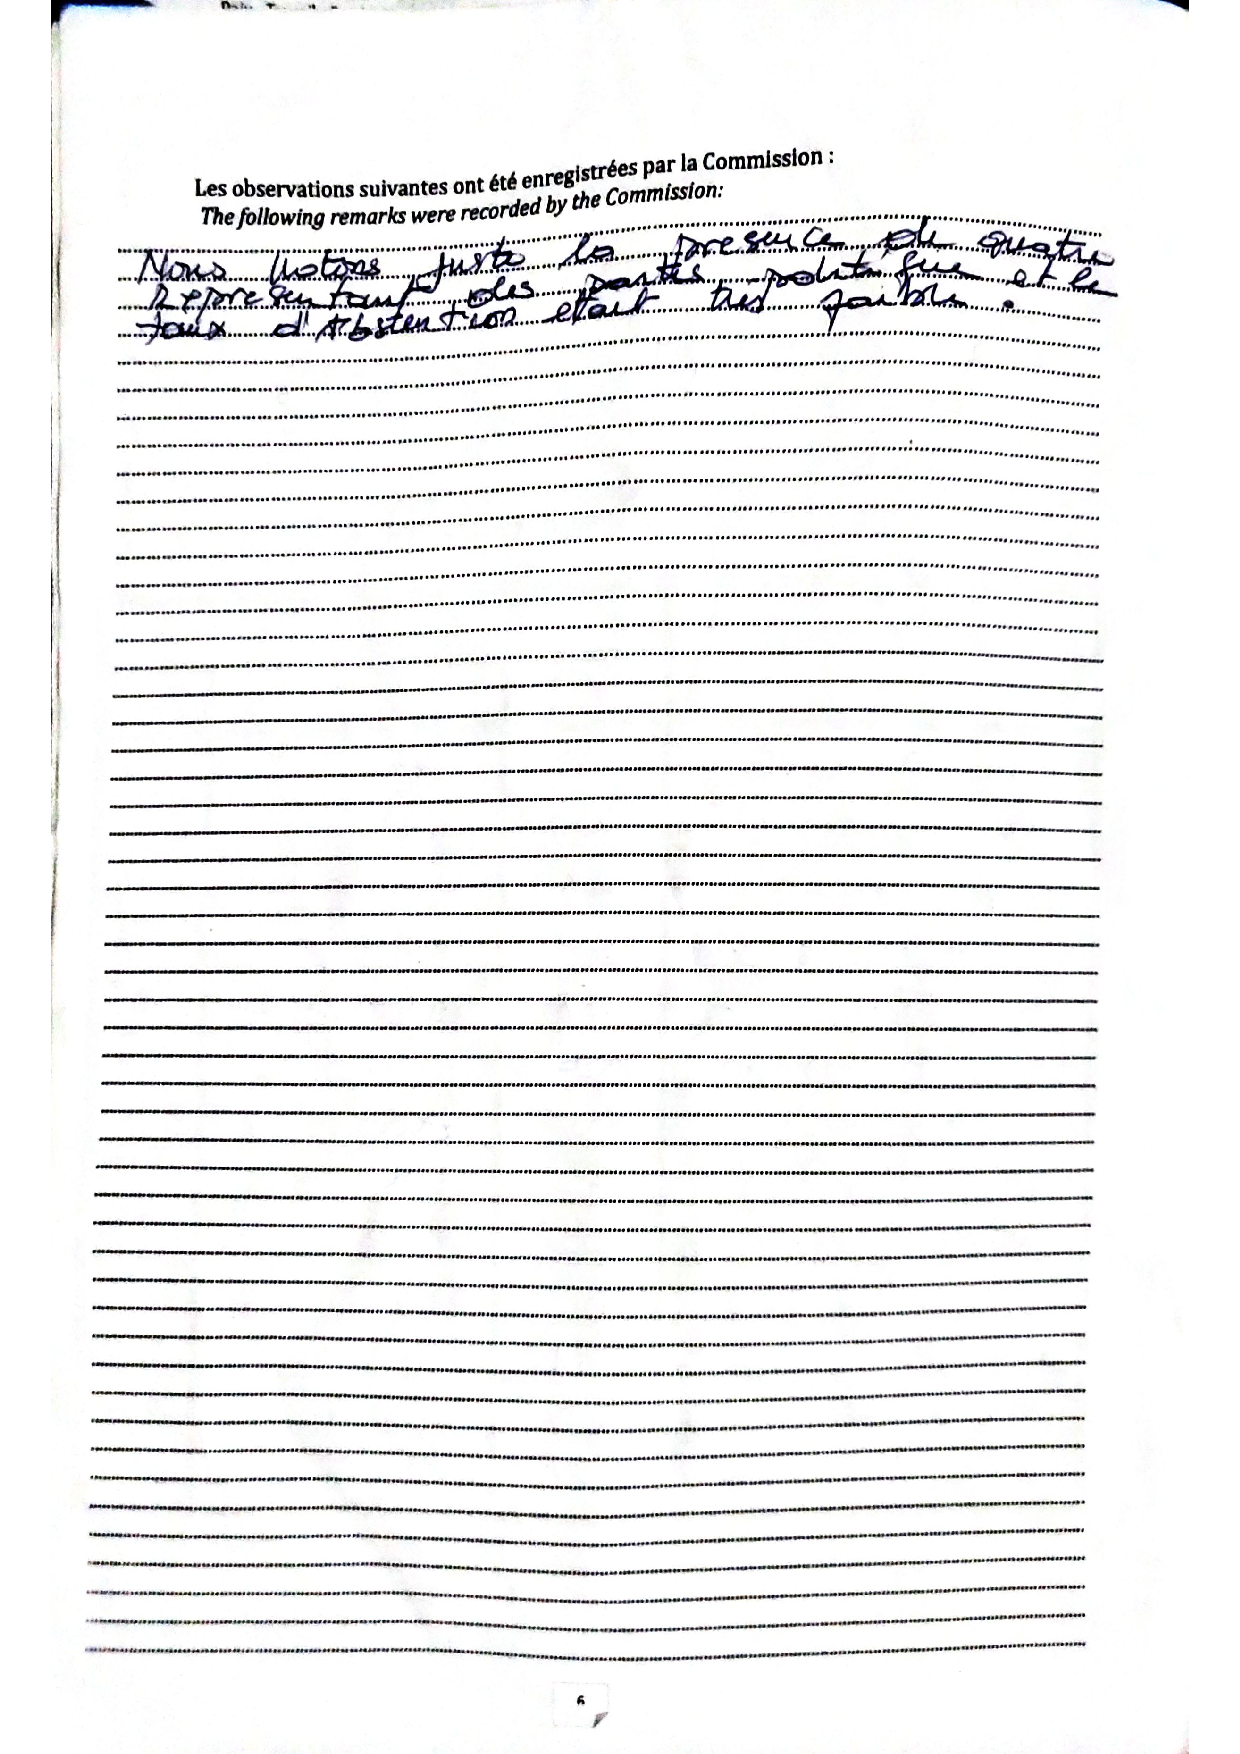 Les observations suivantes ont été enregistrées par la Commission :
The following remarks were recorded by the Commission:
Nous Notons juste la presence de quatre
Representant des partis politique et le
taux d'Abstention etait tres faible.
6